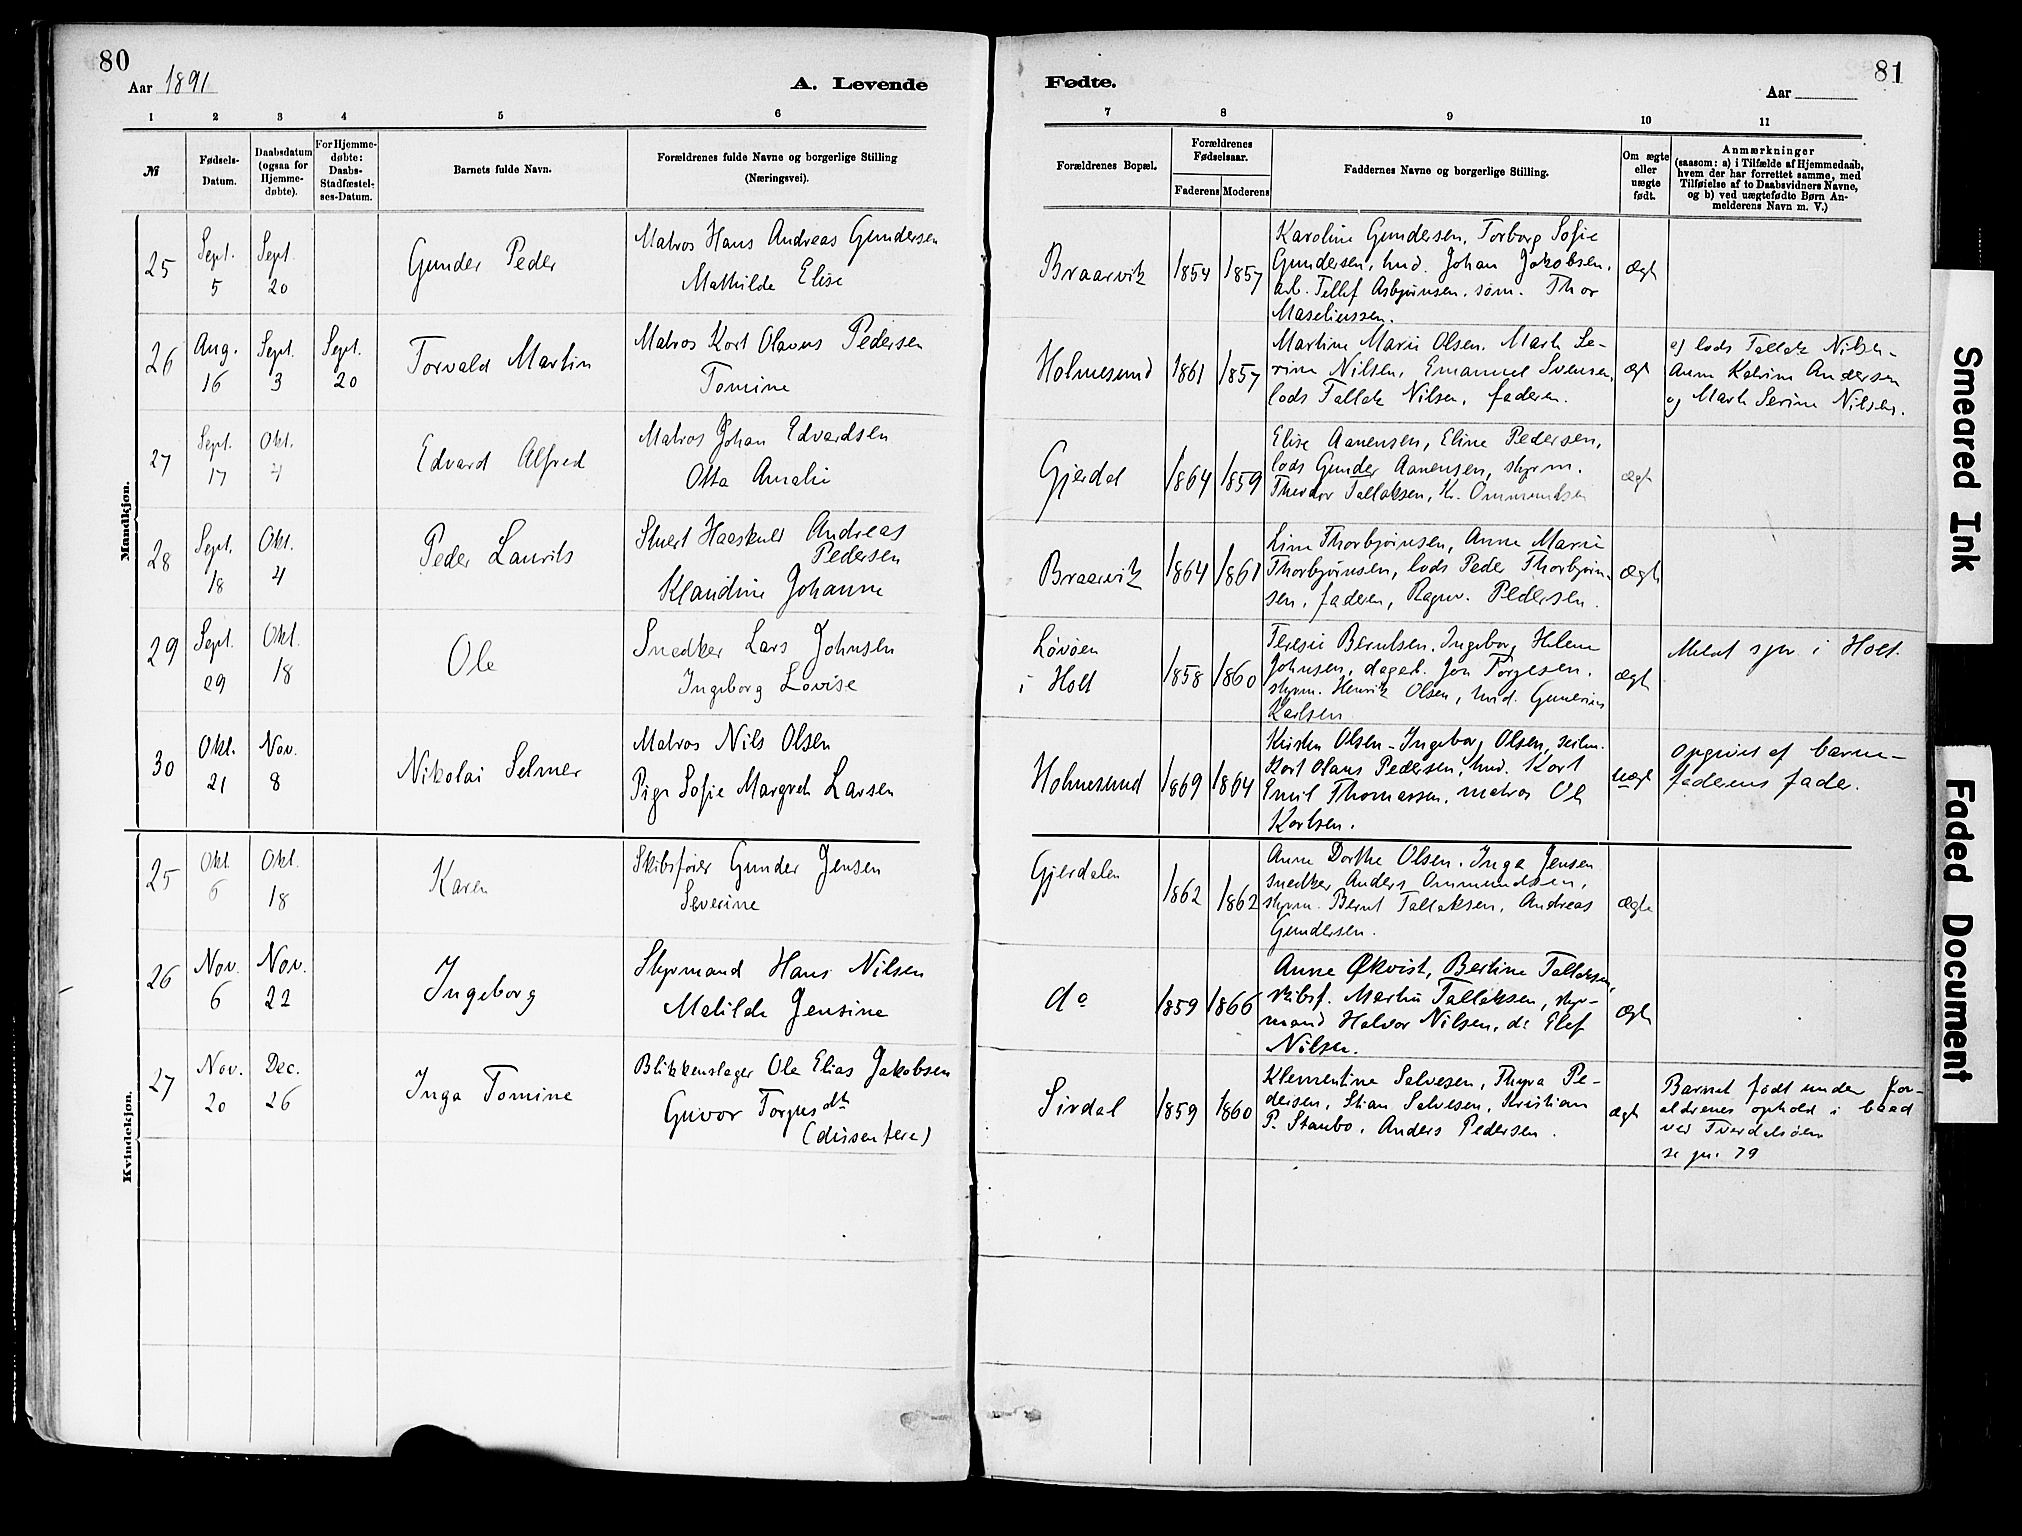 80
Aar 1891
A. Levende
Fødte.
Aar
81
1 2 3 4 5 6 7 8 9 10 11
№
Fødsels-
Datum.
Daabsdatum
(ogsaa for
Hjemme-
døbte).
For Hjemme-
døbte:
Daabs-
Stadfæstel-
ses-Datum.
Barnets fulde Navn.
Forældrenes fulde Navne og borgerlige Stilling
(Næringsvei).
Forældrenes Bopæl.
Forældrenes
Fødselsaar.
Faderens Moderens
Faddernes Navne og borgerlige Stilling.
Om ægte
eller
uægte
født.
Anmærkninger
(saasom: a) i Tilfælde af Hjemmedaab,
hvem der har forrettet samme, med
Tilføielse af to Daabsvidners Navne,
og b) ved uægtefødte Børn An-
melderens Navn m. V.)
Mandkjøn.
25
Sept.
5
Sept.
20
Gunder Peder
Matros Hans Andreas Gundersen
Mathilde Elise
Braarvik
1854
1857
Karoline Gundersen, Torborg Sofie
Gundersen, hud. Johan Jakobsen,
arb. Tellef Asbjørnsen, søm. Thor
Maseliussen.
ægt
26
Aug.
16
Sept.
3
Sept.
20
Torvald Martin
Matros Kort Olavus Pedersen
Tomine
Holmesund
1861
1857
Martine Marie Olsen. Marth Se-
rine Nilsen, Emanuel Svensen,
lods Tallak Nilsen, faderen.
ægt
af lods Tallak Nilsen-
Anne Katrine Andersen
og Marth Serine Nilsen.
27
Sept.
17
Okt.
4
Edvard Alfred
Matros Johan Edvardsen
Otta Amalie
Gjerdal
1864
1859
Elise Aanensen, Eline Pedersen,
lods Gunder Aanensen, styrm.
Theodor Tallaksen, Kr. Ommundsen
ægt
28
Sept.
18
Okt.
4
Peder Laurits
Stuert Andreas
Pedersen
Klaudine Johanne
Braarvik
1864
1861
Line Thorbjørnsen, Anne Marie
Thorbjørnsen, lods Peder Thorbjørn-
sen, faderen, Ragnv. Pedersen.
ægt
29
Sept.
29
Okt.
18
Ole
Snedker Lars Johnsen
Ingeborg Lovise
Løvøen
i Holt
1858
1860
Teresie Berntsen. Ingeborg Helene
Johnsen, dagarb. Jon Torjesen.
styrm. Henrik Olsen, hud. Gunerius
Karlsen
ægt
Meldt spr i Holt.
30
Okt.
21
Nov.
8
Nikolai Selmer
Matros Nils Olsen
Pige Sofie Margreth Larsen
Holmesund
1869
1864
Kirsten Olsen - Ingeborg Olsen, seilm.
Kort Olaus Pedersen, hud. Kort
Emil Thomassen, matros Ole
Karlsen.
uægt
opgivet af barne-
faderens fader.
Kvindekjøn.
25
Okt.
6
Okt.
18
Karen
Skibsfører Gunder Jensen
Severine
Gjerdalen
1862
1862
Anne Dorthe Olsen. Inga Jensen
snedker Anders Ommundsen,
styrm. Bernt Tallaksen, Andreas
Gundersen.
ægte
26
Nov.
6
Nov.
22
Ingeborg
Styrmand Hans Nilsen
Matilde Jensine
do
1859
1866
Anne Økvist, Bertine Tallaksen,
skibsf. Martin Tallaksen, styr-
mand Halvor Nilsen, do Elef
Nilsen.
ægt
27
Nov.
20
Dec.
26
Inga Tomine
Blikkenslager Ole Elias Jakobsen
Guvor Torjusdtr
(dissentere)
Sirdal
1859
1860
Klementine Salvesen, Thyra Pe-
dersen, Stian Salvesen, Kristian
P. Staubo, Anders Pedersen.
ægt
Barnet født under for-
ældrenes ophold i baad
ved Tverdalsøen
se pr. 79
Smeared Ink
Faded Document